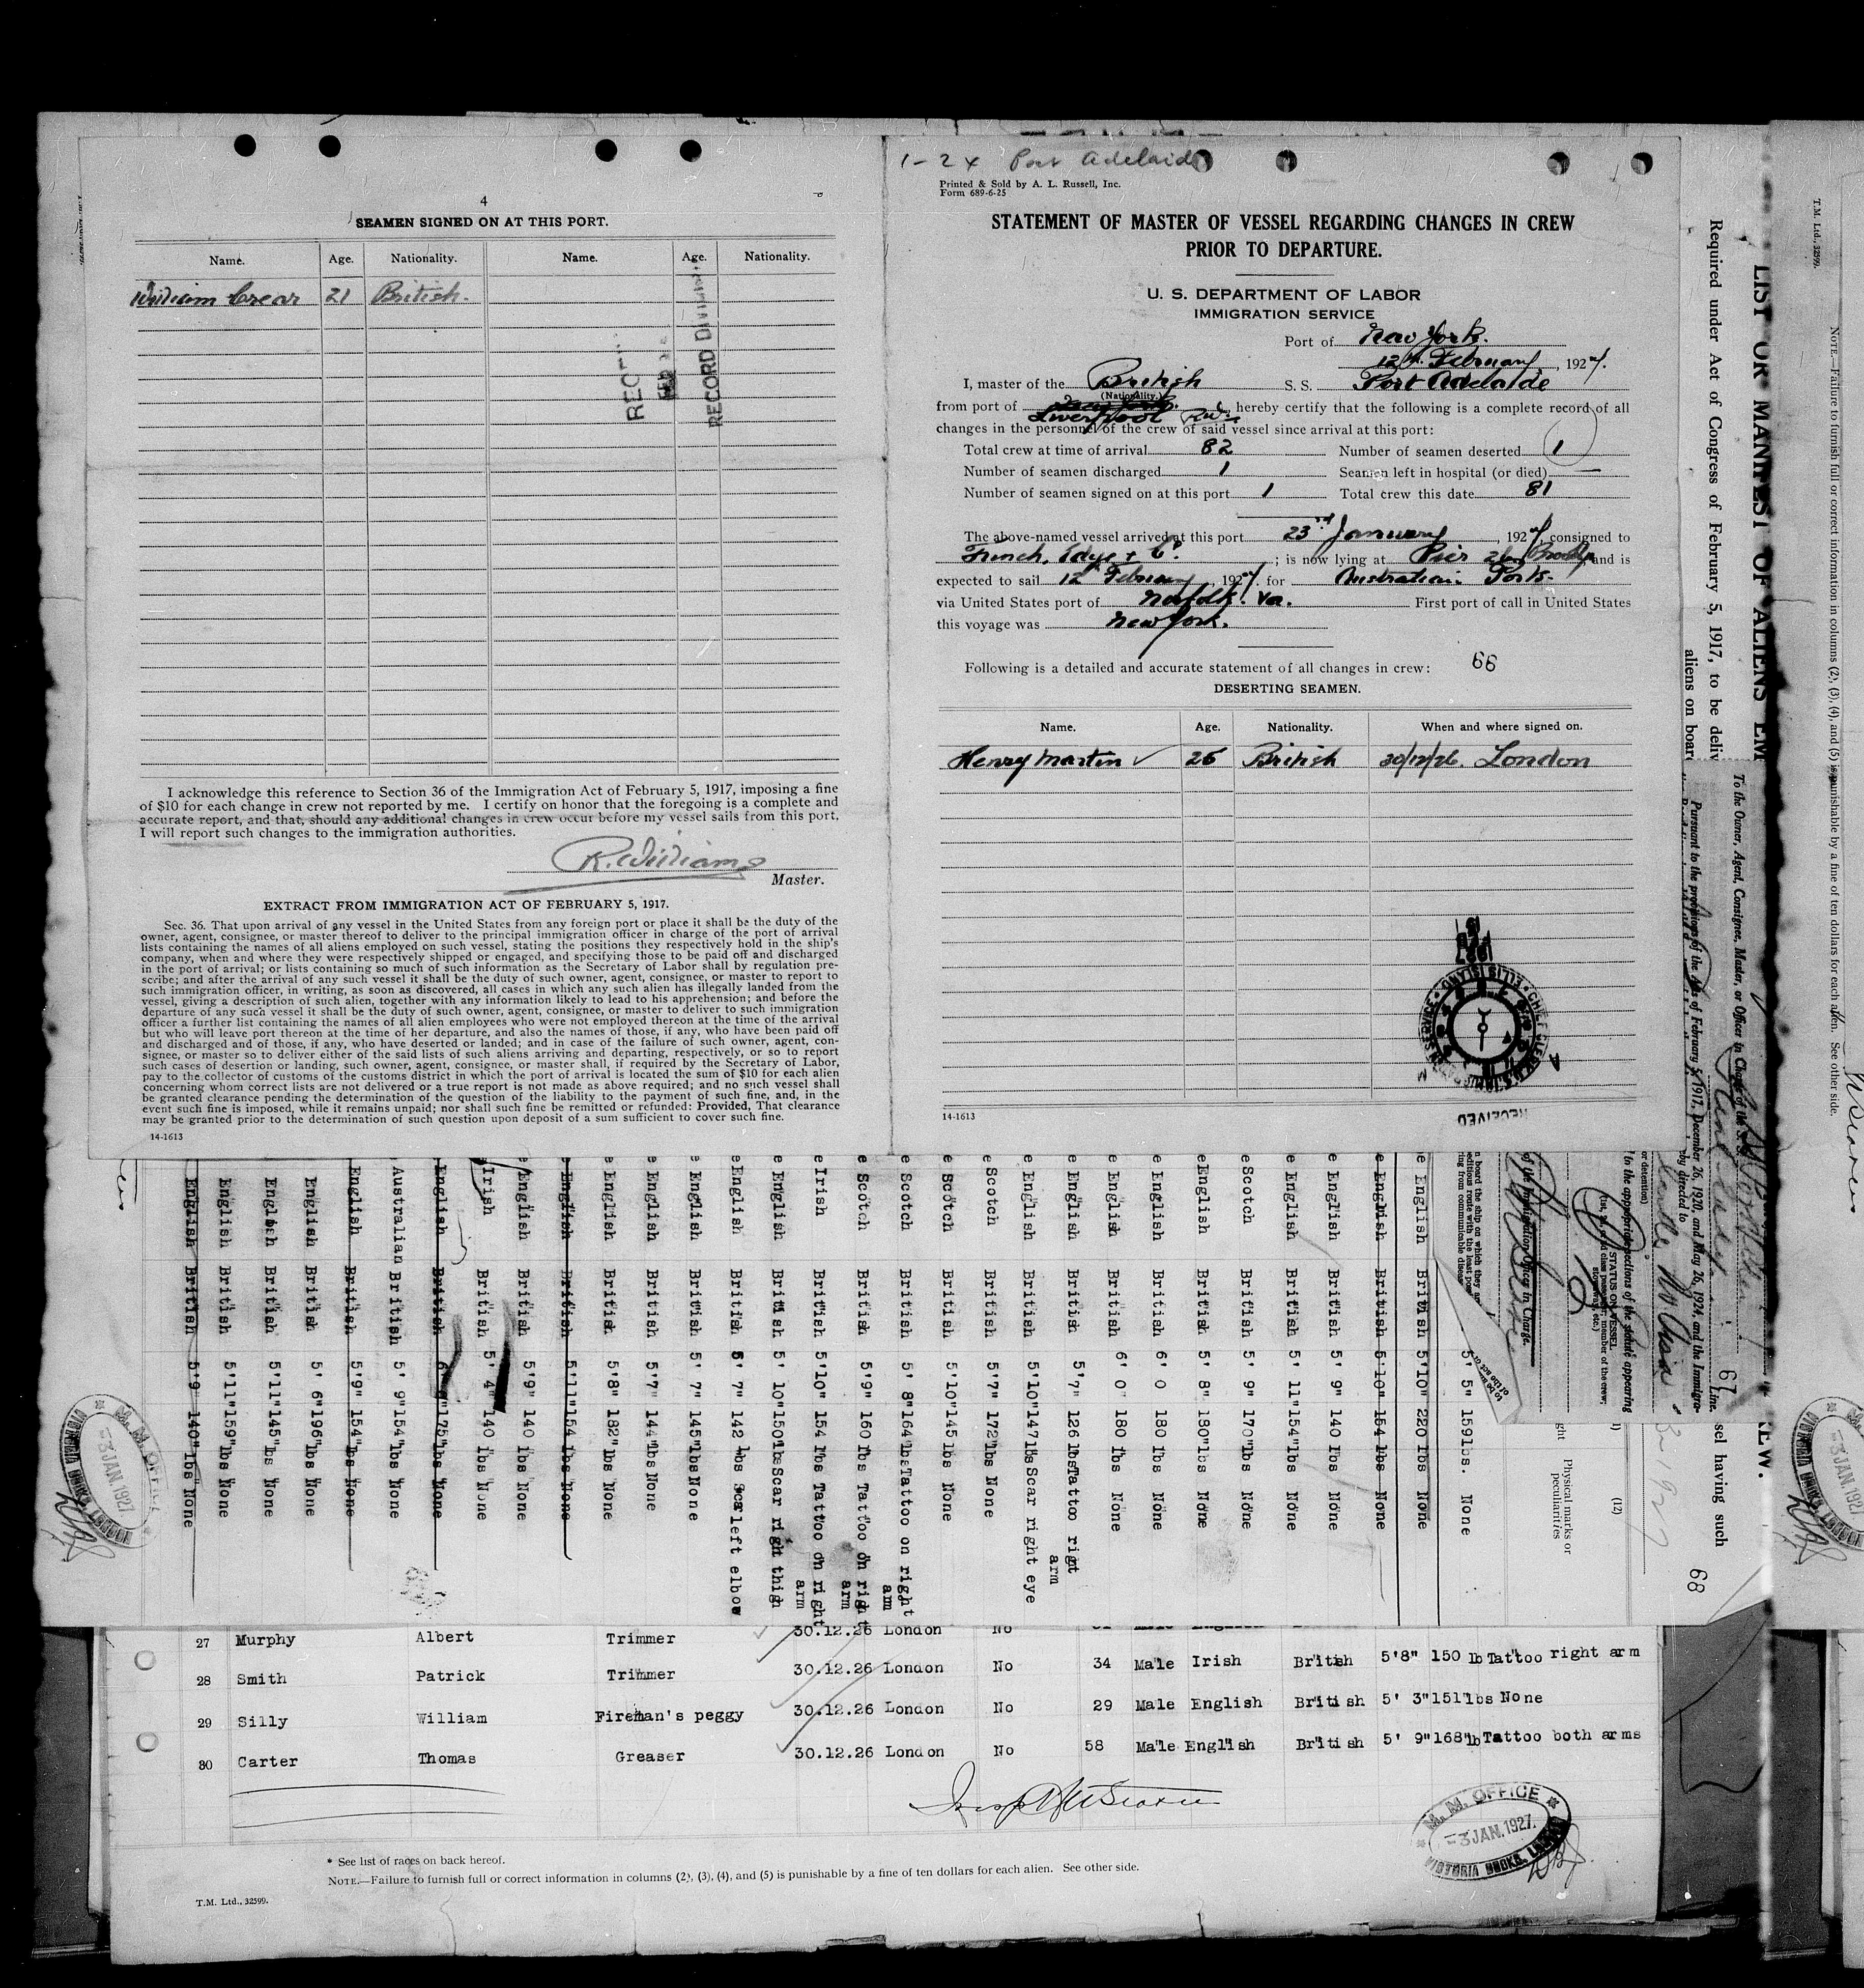 4
SEAMEN SIGNED ON AT THIS PORT.
Name. Age. Nationality. Name. Age. Nationality.
William Crear 21 British.
RECORD DIVISION
I acknowledge this reference to Section 36 of the Immigration Act of February 5, 1917, imposing a fine
of $10 for each change in crew not reported by me. I certify on honor that the foregoing is a complete and
accurate report, and that, should any additional changes in crew occur before my vessel sails from this port,
I will report such changes to the immigration authorities.
R. Williams
Master.
EXTRACT FROM IMMIGRATION ACT OF FEBRUARY 5, 1917.
Sec. 36. That upon arrival of any vessel in the United States from any foreign port or place it shall be the duty of the
owner, agent, consignee, or master thereof to deliver to the principal immigration officer in charge of the port of arrival
lists containing the names of all aliens employed on such vessel, stating the positions they respectively hold in the ship's
company, when and where they were respectively shipped or engaged, and specifying those to be paid off and discharged
in the port of arrival; or lists containing so much of such information as the Secretary of Labor shall by regulation pre-
scribe; and after the arrival of any such vessel it shall be the duty of such owner, agent, consignee, or master to report to
such immigration officer, in writing, as soon as discovered, all cases in which any such alien has illegally landed from the
vessel, giving a description of such alien, together with any information likely to lead to his apprehension; and before the
departure of any such vessel it shall be the duty of such owner, agent, consignee, or master to deliver to such immigration
officer a further list containing the names of all alien employees who were not employed thereon at the time of the arrival
but who will leave port thereon at the time of her departure, and also the names of those, if any, who have been paid off
and discharged and of those, if any, who have deserted or landed; and in case of the failure of such owner, agent, con-
signee, or master so to deliver either of the said lists of such aliens arriving and departing, respectively, or so to report
such cases of desertion or landing, such owner, agent, consignee, or master shall, if required by the Secretary of Labor,
pay to the collector of customs of the customs district in which the port of arrival is located the sum of $10 for each alien
concerning whom correct lists are not delivered or a true report is not made as above required; and no such vessel shall
be granted clearance pending the determination of the question of the liability to the payment of such fine, and, in the
event such fine is imposed, while it remains unpaid; nor shall such fine be remitted or refunded: Provided, That clearance
may be granted prior to the determination of such question upon deposit of a sum sufficient to cover such fine.
14-1613
1-24 Port Adelaide
Printed & Sold by A. L. Russell, Inc.
Form 689-6-25
STATEMENT OF MASTER OF VESSEL REGARDING CHANGES IN CREW
PRIOR TO DEPARTURE.
U. S. DEPARTMENT OF LABOR
IMMIGRATION SERVICE
Port of New York.
12th February, 1927.
I, master of the British S. S. Port Adelaide
(Nationality.)
from port of Liverpool, hereby certify that the following is a complete record of all
changes in the personnel of the crew of said vessel since arrival at this port:
Total crew at time of arrival 82 Number of seamen deserted 1
Number of seamen discharged 1 Seamen left in hospital (or died) —
Number of seamen signed on at this port 1 Total crew this date 81
The above-named vessel arrived at this port 23rd January, 1927, consigned to
French, Edye & Co. ; is now lying at Pier 26 Brooklyn and is
expected to sail 12th February, 1927. for Australian Ports.
via United States port of Norfolk. Va. First port of call in United States
this voyage was New York.
Following is a detailed and accurate statement of all changes in crew: 66
DESERTING SEAMEN.
Name. Age. Nationality. When and where signed on.
Henry Martin 26 British 30/12/26. London
RECEIVED
14-1613
LIST OR MANIFEST OF ALIENS EM
Required under Act of Congress of February 5, 1917, to be deliv
aliens on board
sel having such
68
To the Owner, Agent, Consignee, Master, or Officer in Charge of the S. S.
Pursuant to the provisions of the Acts of February 5, 1917, December 26, 1920, and May 26, 1924, and the Immigra-
67
Line.
by directed to
or detention)
to the appropriate sections of the statute appearing
STATUS ON VESSEL
of the Immigration Officer in Charge.
Physical marks or
peculiarities
(12)
5' 5" 159lbs. None
English British 5'10" 220 lbs None
English British 5'10" 154 lbs None
English British 5' 9" 140 lbs None
English British 5' 11" 154 lbs None
Scotch British 5' 9" 170 lbs None
English British 5' 8" 180 lbs None
English British 6' 0 180 lbs None
English British 6' 0" 180 lbs None
English British 5'7" 126 lbs Tattoo right
arm
English British 5'10" 147 lbs Scar right eye
Scotch British 5'7" 172 lbs None
Scotch British 5'10" 145 lbs None
Scotch British 5' 8" 164 lbs Tattoo on right
arm
Scotch British 5'9" 160 lbs Tattoo on right
arm
Irish British 5'10" 154 lbs Tattoo on right
arm
English British 5' 10" 150 lbs Scar right thigh
English British 5' 7" 142 lbs Scar left elbow
English British 5' 7" 145 lbs None
English British 5'7" 144 lbs None
English British 5'8" 182 lbs None
English British 5'11" 154 lbs None
English British 5'9" 140 lbs None
Irish British 5' 4" 140 lbs None
English British 175 lbs None
Australian British 5' 9" 154 lbs None
English British 5'9" 154 lbs None
English British 5' 6" 196 lbs None
English British 5'11" 145 lbs None
English British 5'11" 159 lbs None
English British 5'9 140 lbs None
27 Murphy Albert Trimmer 30.12.26 London No
28 Smith Patrick Trimmer 30.12.26 London No 34 Male Irish British 5'8" 150 lb Tattoo right arm
29 Silly William Fireman's peggy 30.12.26 London No 29 Male English British 5' 3" 151 lbs None
30 Carter Thomas Greaser 30.12.26 London No 58 Male English British 5' 9" 168 lb Tattoo both arms
M. M. OFFICE
-3 JAN. 1927.
VICTORIA DOCKS, LONDON
* See list of races on back hereof.
NOTE.—Failure to furnish full or correct information in columns (2), (3), (4), and (5) is punishable by a fine of ten dollars for each alien. See other side.
T.M. Ltd., 32599.
T.M. Ltd., 32599.
NOTE.—Failure to furnish full or correct information in columns (2), (3), (4), and (5) is punishable by a fine of ten dollars for each alien. See other side.